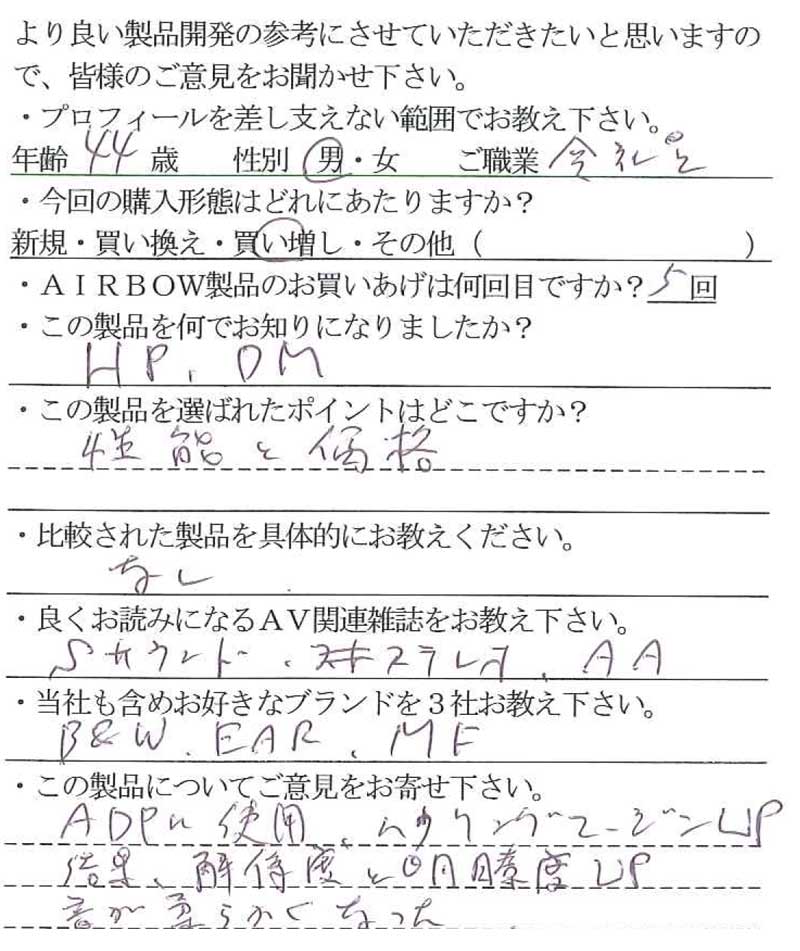 より良い製品開発の参考にさせていただきたいと思いますの
で、皆様のご意見をお聞かせ下さい。
・プロフィールを差し支えない範囲でお教え下さい。
年齢 44 歳 性別 男・女 ご職業 会社員
・今回の購入形態はどれにあたりますか？
新規・買い換え・買い増し・その他（ ）
・ＡＩＲＢＯＷ製品のお買いあげは何回目ですか？5回
・この製品を何でお知りになりましたか？
HP、DM
・この製品を選ばれたポイントはどこですか？
性能と価格
・比較された製品を具体的にお教えください。
なし
・良くお読みになるＡＶ関連雑誌をお教え下さい。
Sサウンド、ステレオ、AA
・当社も含めお好きなブランドを３社お教え下さい。
B&W、EAR、MF
・この製品についてご意見をお寄せ下さい。
ADPに使用、ハウリングマージンUP
結果、解像度と明瞭度UP
音が柔らかくなった